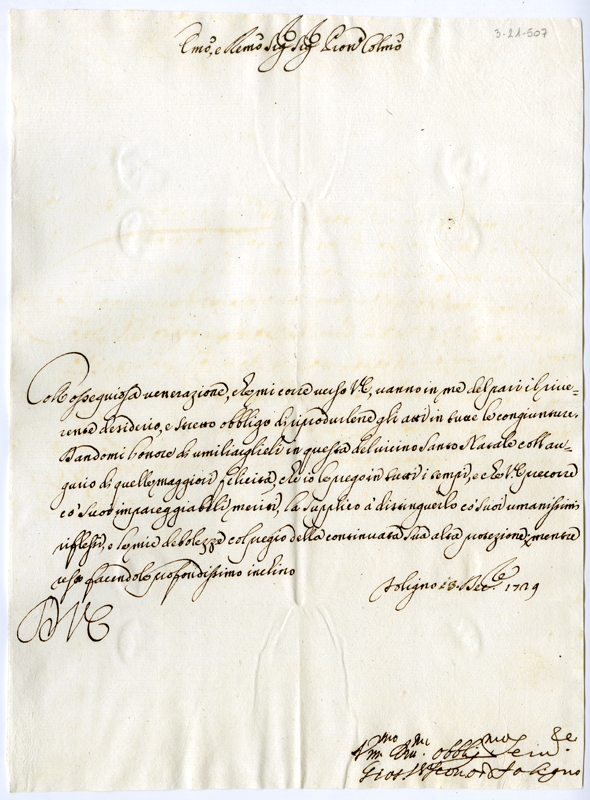 3-21-507
Emo, e Rmo Sig.r Sig.r Pron Colmo
Coll'ossequiosa venerazione, che mi corre verso V.E., vanno in me del pari il rive-
rente desiderio, e stretto obbligo di riprodurlene gli atti in tutte le congiunture.
Dandomi honore di umiliaglieli in questa del vicino Santo Natale coll'au-
gurio di quelle maggiori felicità, che io le prego in tutti i tempi, e che V.E. precorre
co' Suoi impareggiabili meriti, la supplico à distinguerlo co' suoi umanissimi
riflessi, e la mia debolezza col pregio della continuata Sua alta protezione; mentre
profondissimo inclino
Foligno 13 Xbre 1729
D V E
Vmo Dmo obblig.mo Serv.re
Foligno